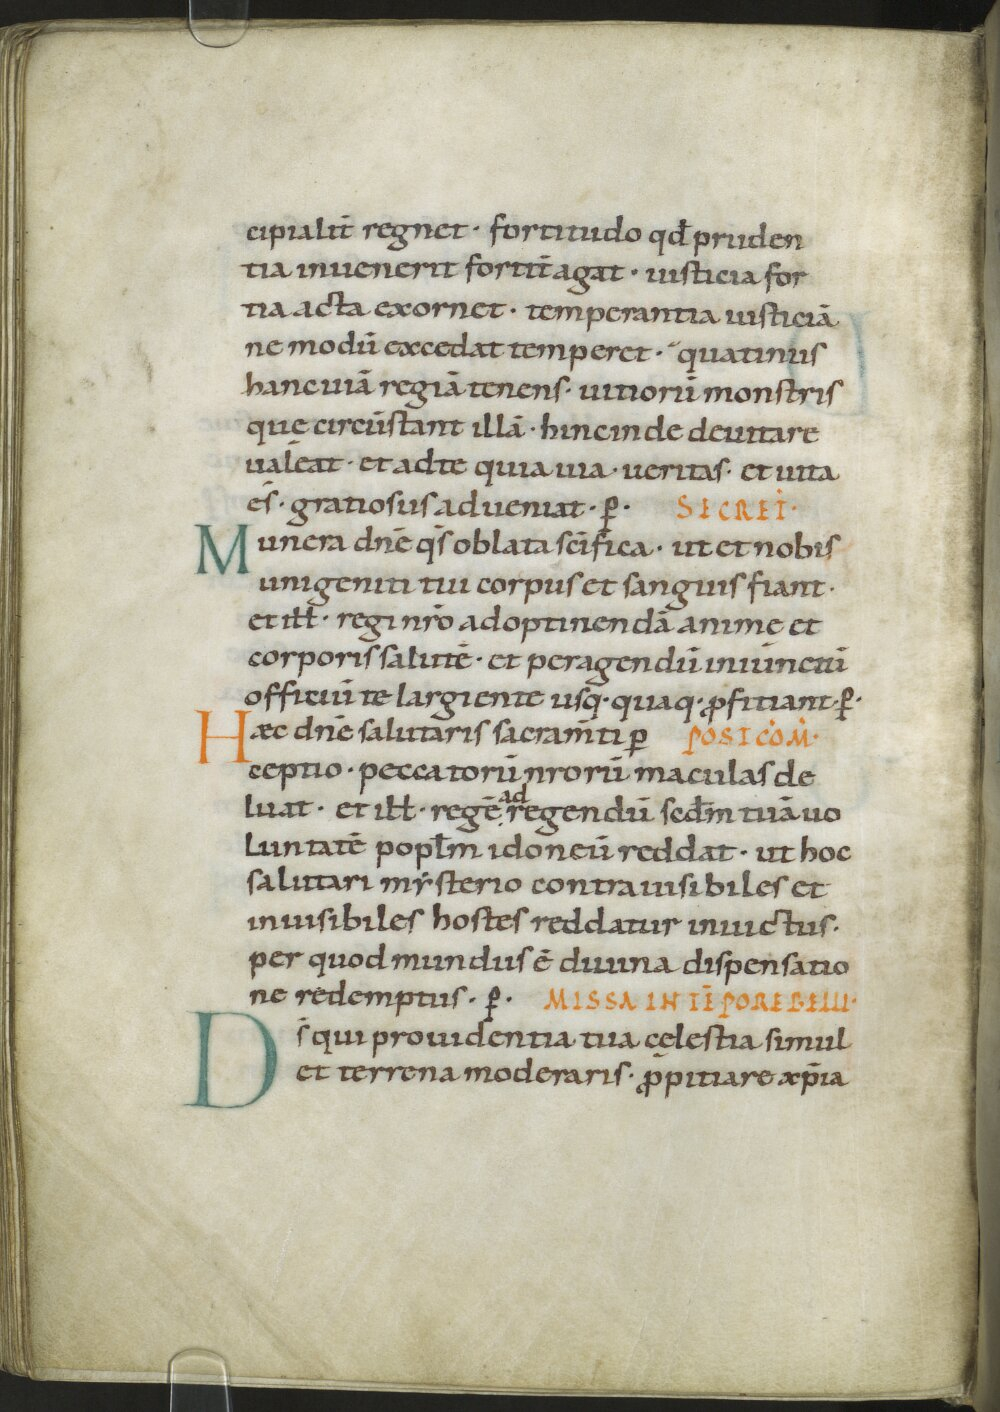 cipialit̄ regnet · fortitudo qđ pruden
tia inuenerit fortit̄ agat · iusticia for
tia acta exornet · temperantia iusticiā
ne modū excedat temperet · quatinus
hanc uiā regiā tenens · uitiorū monstris
que circūstant illā · hinc inde deuitare
ualeat · et ad te quia uia · ueritas · et uita
ēs · gratiosus adueniat · p̄ · SECRET̄ ·
Munera dn̄e q̄s oblata sc̄ifica · ut et nobis
unigeniti tui corpus et sanguis fiant ·
et iłł · regi nr̄o ad optinendā anime et
corporis salutē · et peragendū iniūctū
officiū te largiente usq · quaq · ꝓfitiant · p̄ ·
Hæc dn̄e salutaris sacram̄ti ꝑ POSTCOM̄ ·
ceptio · peccatorū nrorū maculas de
luat · et iłł · regē ad regendū sedm̄ tuā uo
luntatē popłm idoneū reddat · ut hoc
salutari mẏsterio contra uisibiles et
inuisibiles hostes reddatur inuictus ·
per quod mundus ē diuina dispensatio
ne redemptus · p̄ · MISSA IN TĒPORE BELLI ·
Ds̄ qui prouidentia tua celestia simul
et terrena moderaris · ꝓpitiare xp̄ia